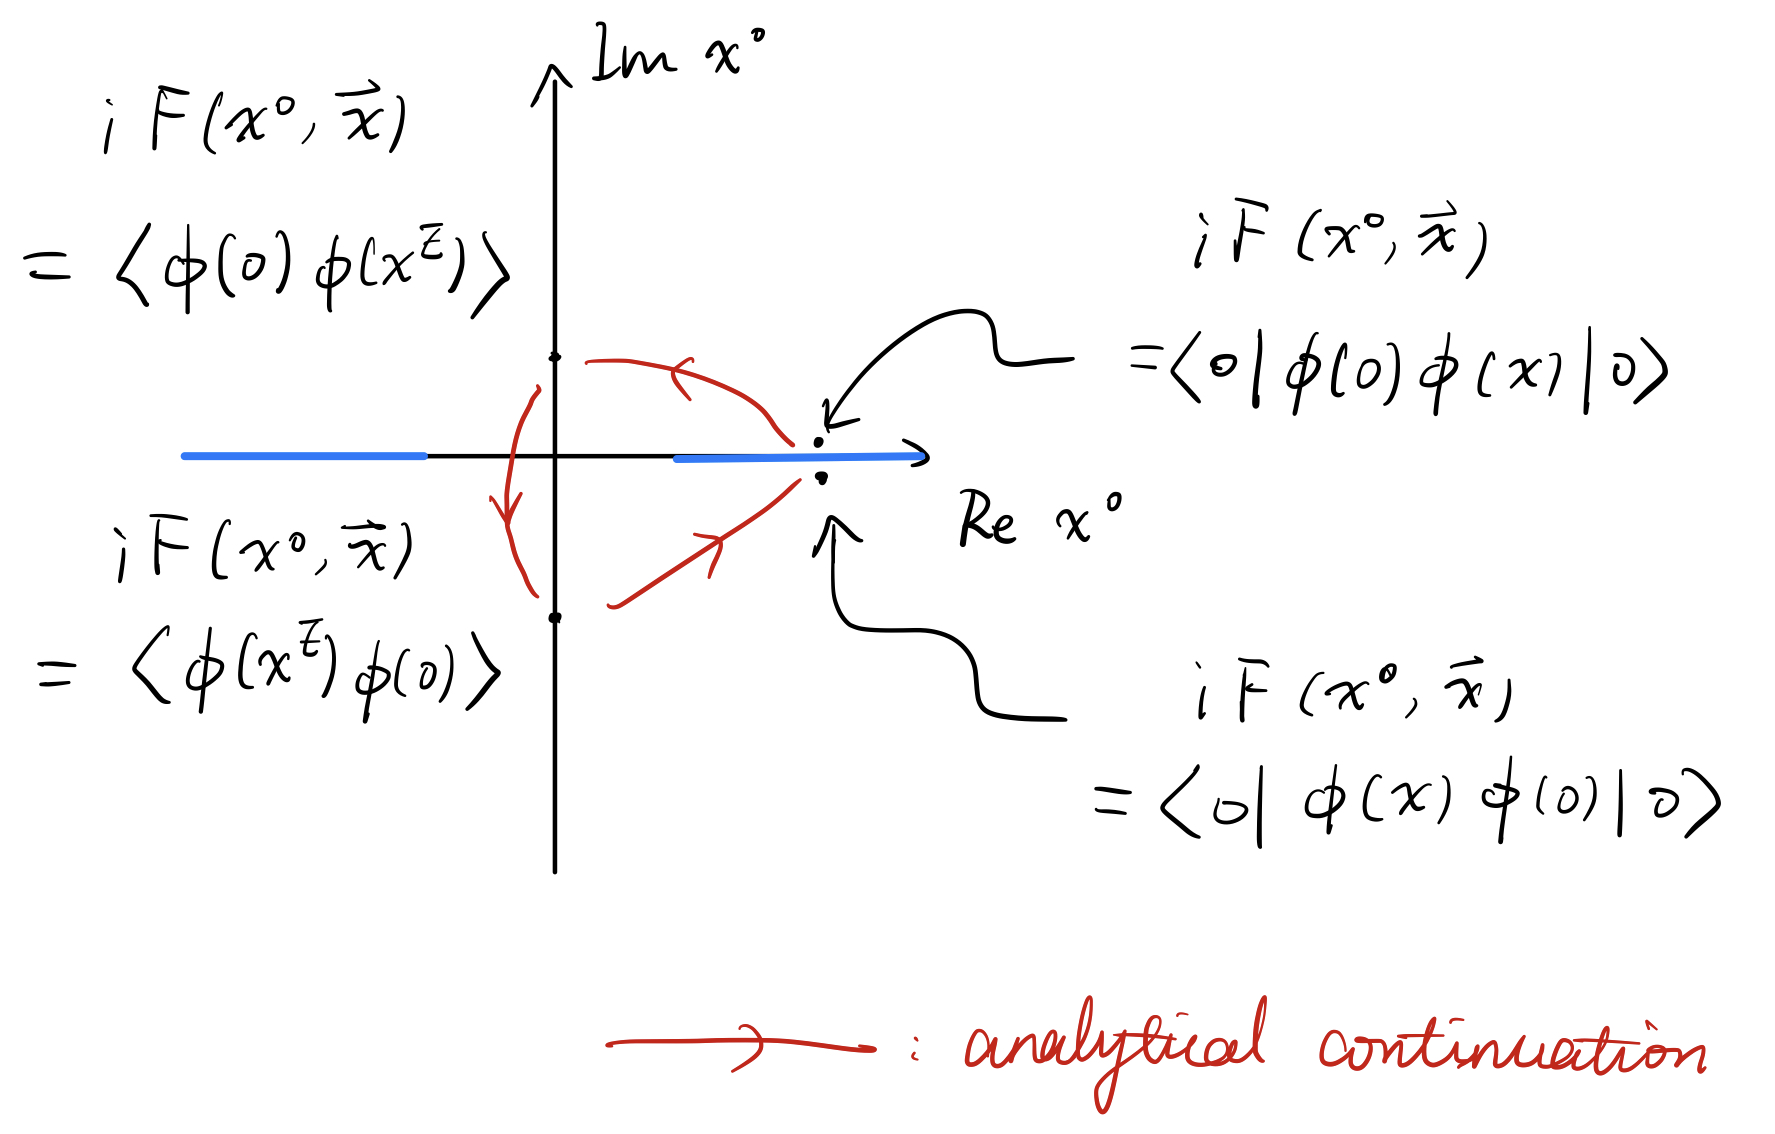 Im x⁰
i F(x⁰, x⃗)
= ⟨ϕ(0) ϕ(x^E)⟩
i F(x⁰, x⃗)
= ⟨0| ϕ(0) ϕ(x) |0⟩
Re x⁰
i F(x⁰, x⃗)
= ⟨ϕ(x^E) ϕ(0)⟩
i F(x⁰, x⃗)
= ⟨0| ϕ(x) ϕ(0) |0⟩
: analytical continuation